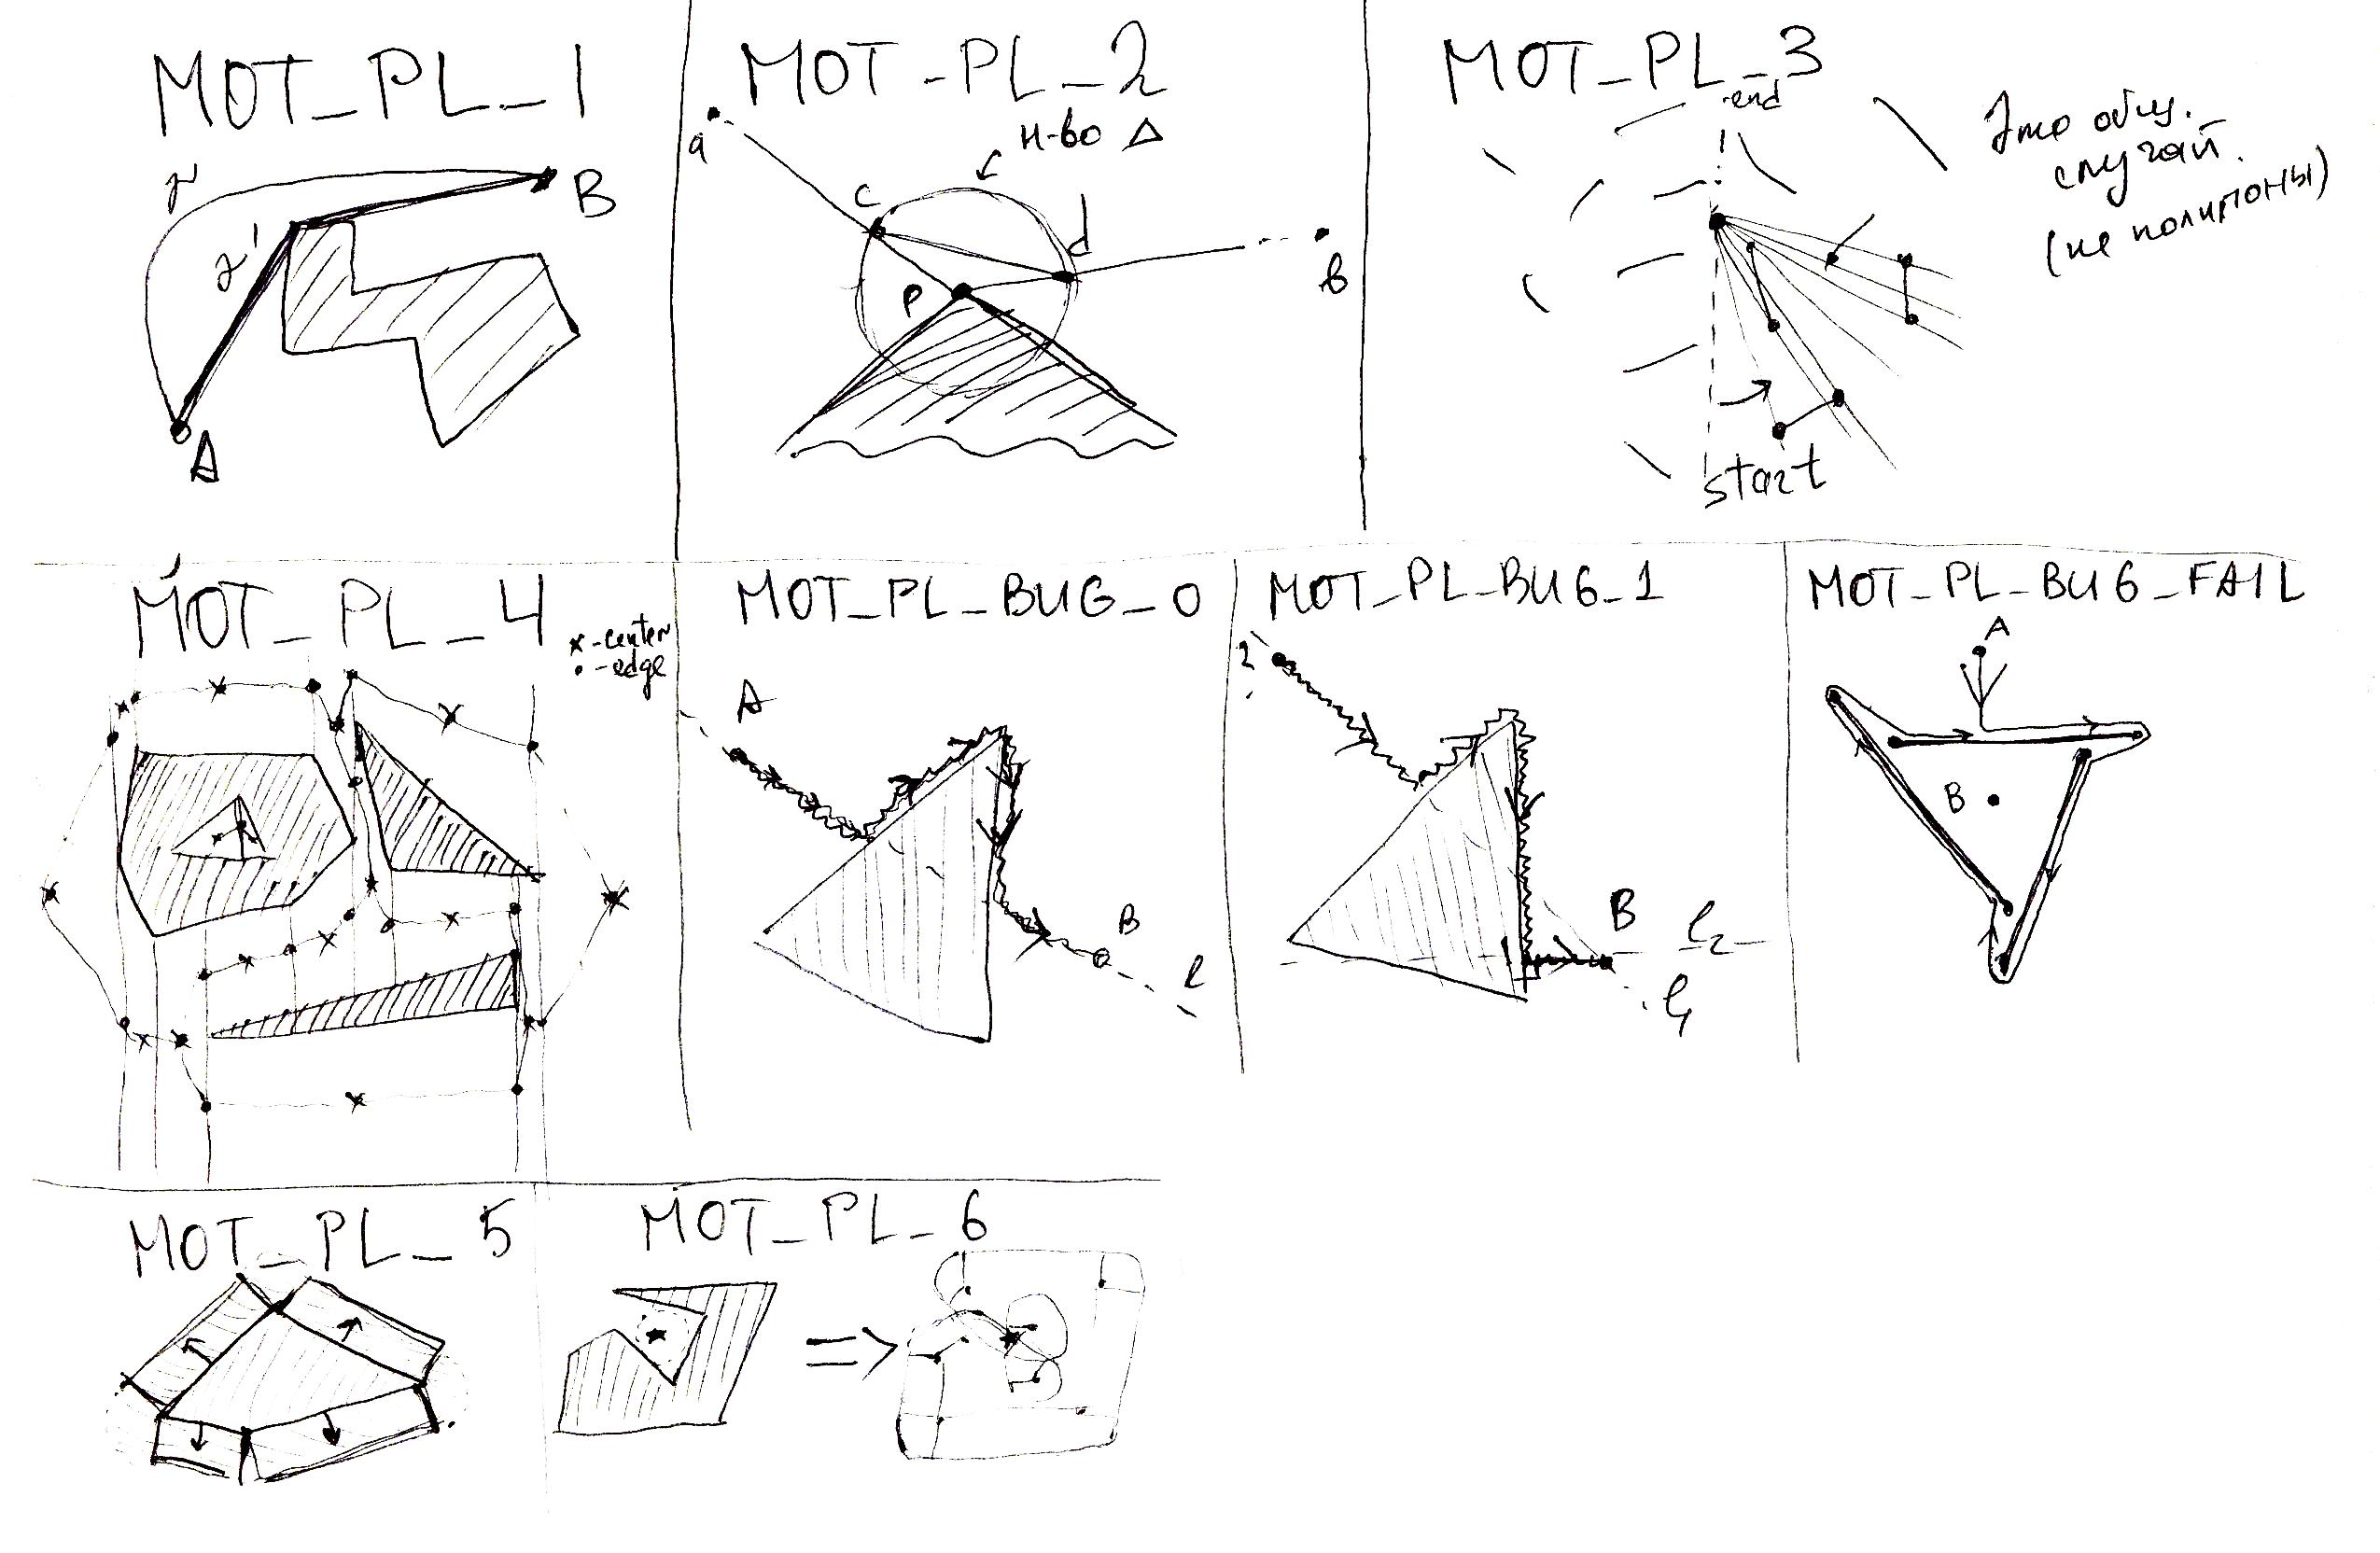 MOT_PL_1
γ
γ'
B
A
MOT-PL_2
a
н-во Δ
c
d
P
b
MOT_PL_3
end
Это общ.
случай.
(не полигоны)
start
MOT_PL_4
x-center
•-edge
MOT_PL_BUG_0
A
B
l
MOT_PL_BUG_1
B
l₂
l₁
MOT_PL_BUG_FAIL
A
B
MOT_PL_5
MOT_PL_6